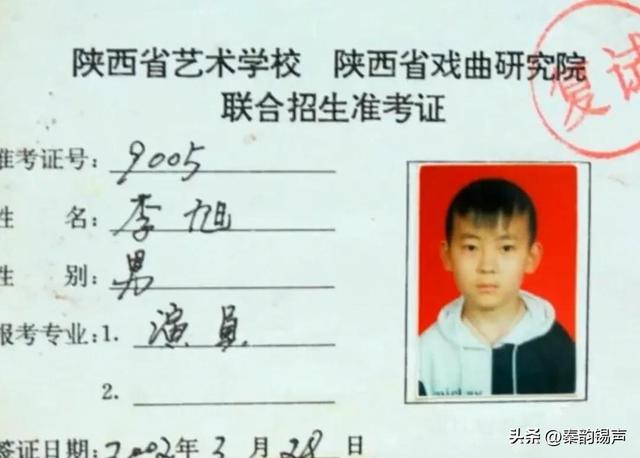 陕西省艺术学校 陕西省戏曲研究院
联合招生准考证
复试
准考证号: 9005
姓 名: 李旭
性 别: 男
报考专业: 1. 演員
2.
签证日期: 2002年3月28日
头条@秦韵锡声